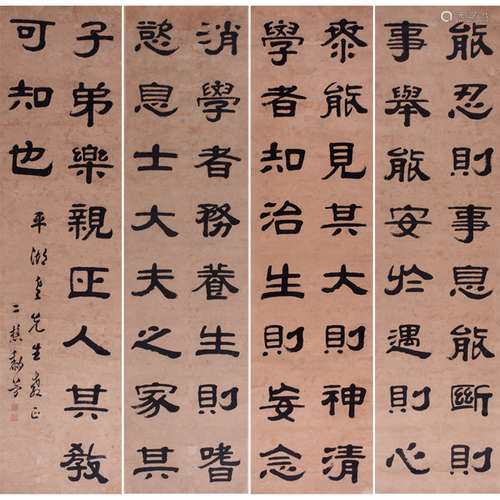 能忍則事息能斷則
事舉能安於遇則心
泰能見其大則神清
學者知治生則妄念
消學者務養生則嗜
慾息士大夫之家其
子弟樂親正人其教
可知也
平湖先生正